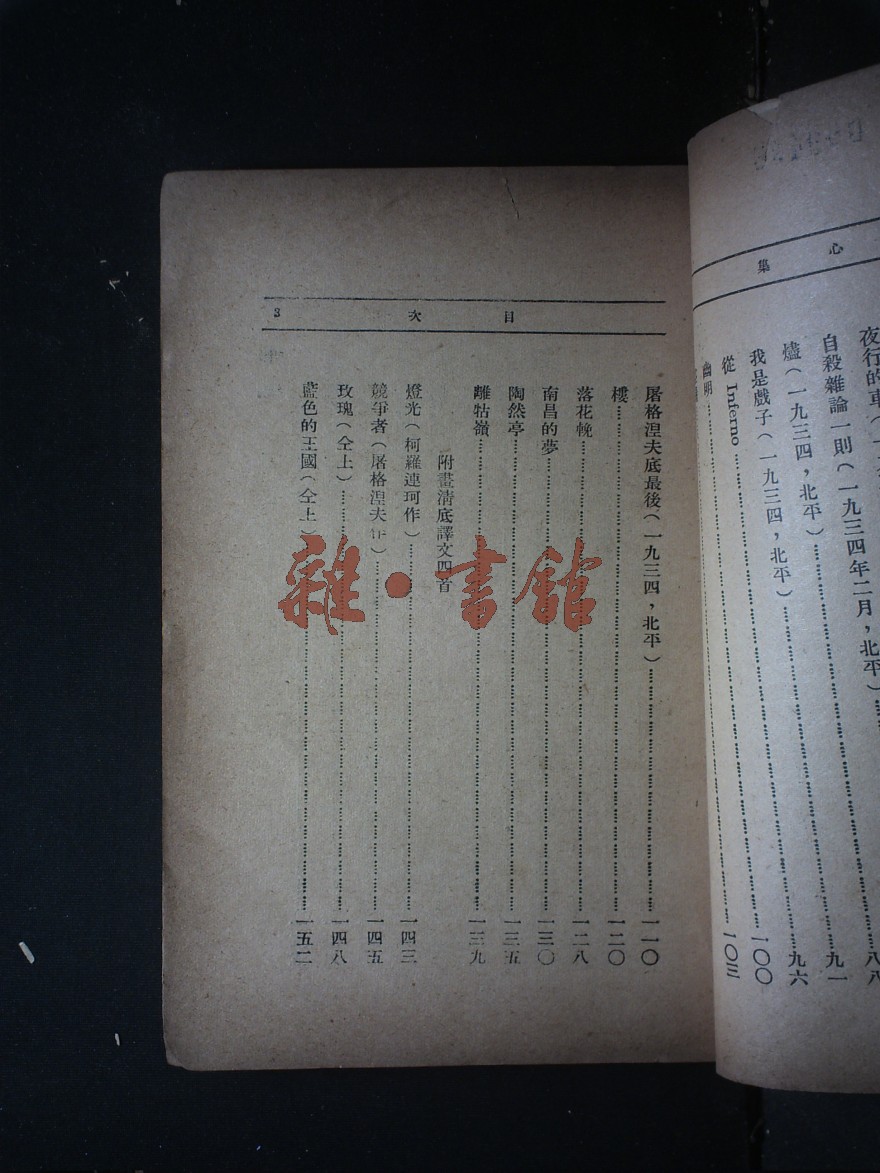 心集
夜行的車(一
自殺雜論一則(一九三四年二月,北平)……九一
燼(一九三四,北平)……九六
我是戲子(一九三四,北平)……一〇〇
從 Inferno……一〇三
幽明……
目次 3
屠格涅夫底最後(一九三四,北平)……一一〇
樓……一二〇
落花輓……一二八
南昌的夢……一三〇
陶然亭……一三五
離牯嶺……一三九
附畫清底譯文四首
燈光(柯羅連珂作)……一四三
競爭者(屠格涅夫作)……一四五
玫瑰(仝上)……一四八
藍色的王國(仝上)……一五二
雜·書館